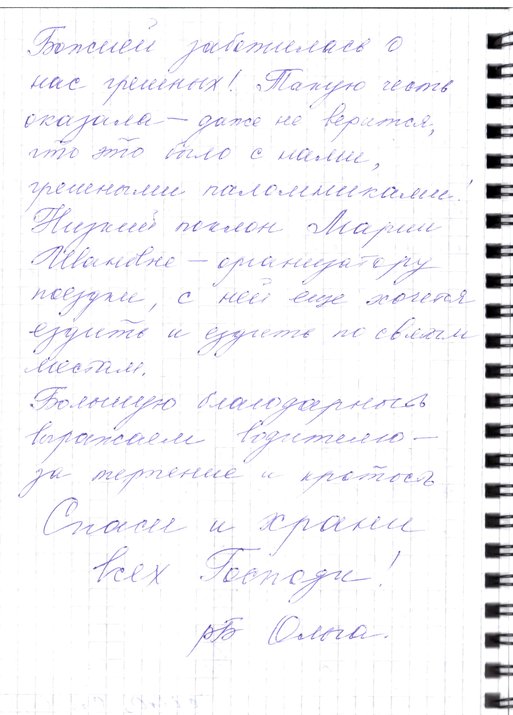 Божией заботилась о
нас грешных! Такую честь
оказала – даже не верится,
что это было с нами,
грешными паломниками!
Низкий поклон Марии
Ивановне – организатору
поездки, с ней еще хочется
ездить и ездить по святым
местам.
Большую благодарность
выражаем водителю –
за терпение и кротость
Спаси и храни
всех Господи!
рБ Ольга.